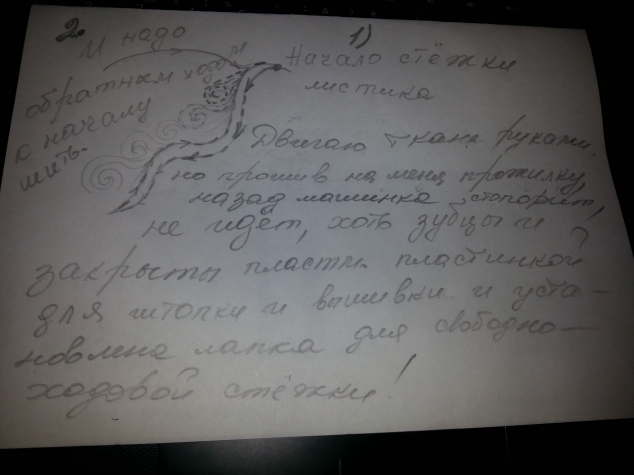 1)
Начало стёжки
листика
2.
И надо
обратным ходом
к началу
шить.
Двигаю ткань руками,
но прошив на меня прожилку,
назад машинка стопорит,
не идёт, хоть зубцы и
закрыты пласти. пластинкой
для штопки и вышивки и уста-
новлена лапка для свободно-
ходовой стёжки!
?